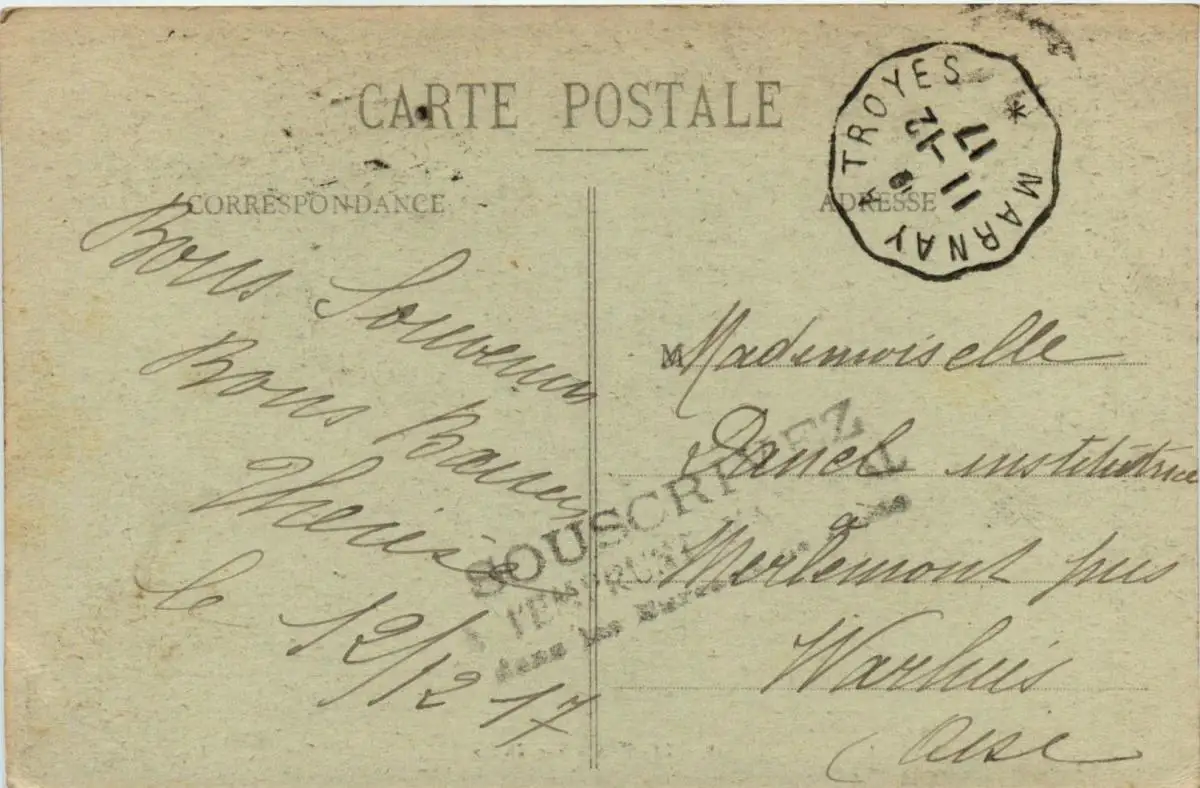 CARTE POSTALE
CORRESPONDANCE
ADRESSE
TROYES * MARNAY *
11 -12
17
Bons Souvenirs
Bons Baisers
Therese
le 12/12 17
M Mademoiselle
Danel institutrice
a
Merlemont près
Warluis
Oise
SOUSCRIVEZ
A l'EMPRUNT NATIONAL
dans les Bureaux de Poste